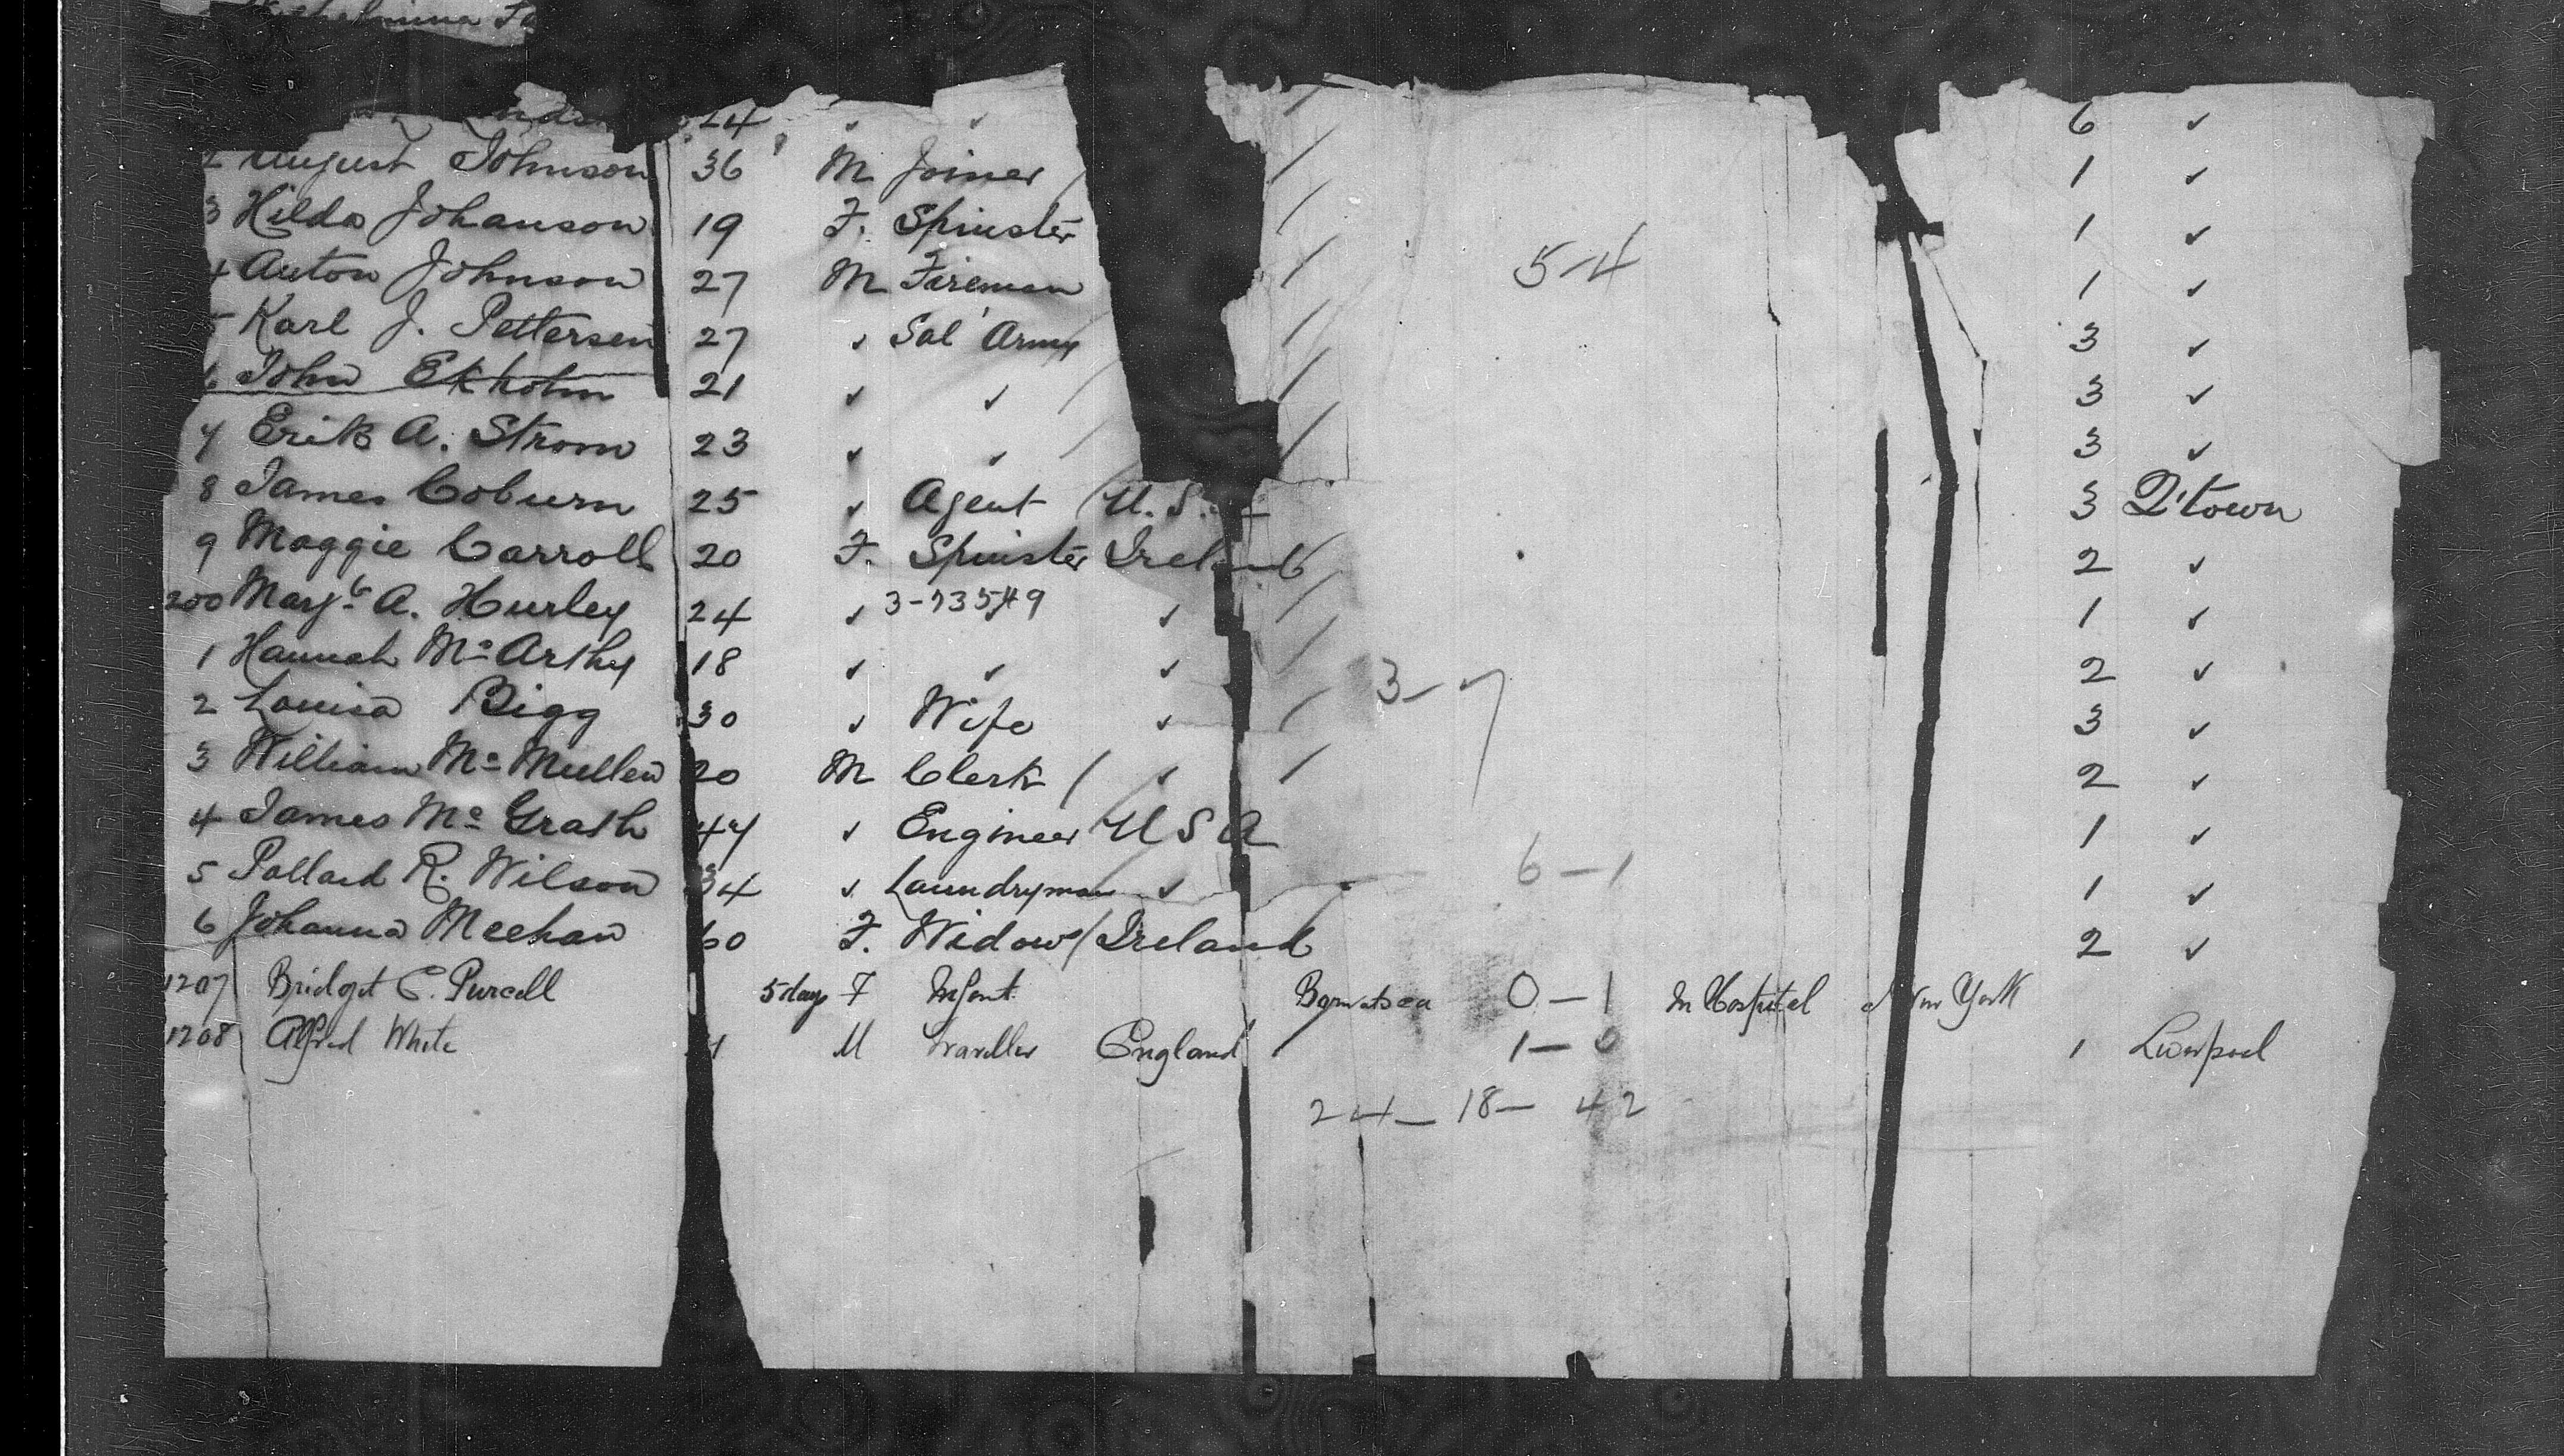 24 ✓ ✓ 6 ✓
2 August Johnson 36 M Joiner / / 1 ✓
3 Hilda Johanson 19 F. Spinster / 1 ✓
4 Anton Johnson 27 M Fireman / 5-4 1 ✓
5 Karl J. Pettersen 27 ✓ Sal Army / 3 ✓
6 John Ekholm 21 ✓ ✓ / / 3 ✓
7 Erik A. Strom 23 ✓ ✓ / / 3 ✓
8 James Coburn 25 ✓ Agent / U.S. 3 Q'town
9 Maggie Carroll 20 F. Spinster Ireland / 2 ✓
200 Margt A. Hurley 24 ✓ 3-73549 ✓ / 1 ✓
1 Hannah Mc Arthy 18 ✓ ✓ ✓ / 3-7 2 ✓
2 Louisa Bigg 30 ✓ Wife ✓ / 3 ✓
3 William Mc Mullen 20 M Clerk / ✓ / 2 ✓
4 James Mc Grath 47 ✓ Engineer / U S A 1 ✓
5 Pollard R. Wilson 34 ✓ Laundryman ✓ 6-1 1 ✓
6 Johanna Meehan 60 F. Widow / Ireland / 2 ✓
1207 Bridget C. Purcell 5 days F Infant Born at sea 0-1 In Hospital New York
1208 Alfred White M Traveller England / 1-0 1 Liverpool
24- 18- 42